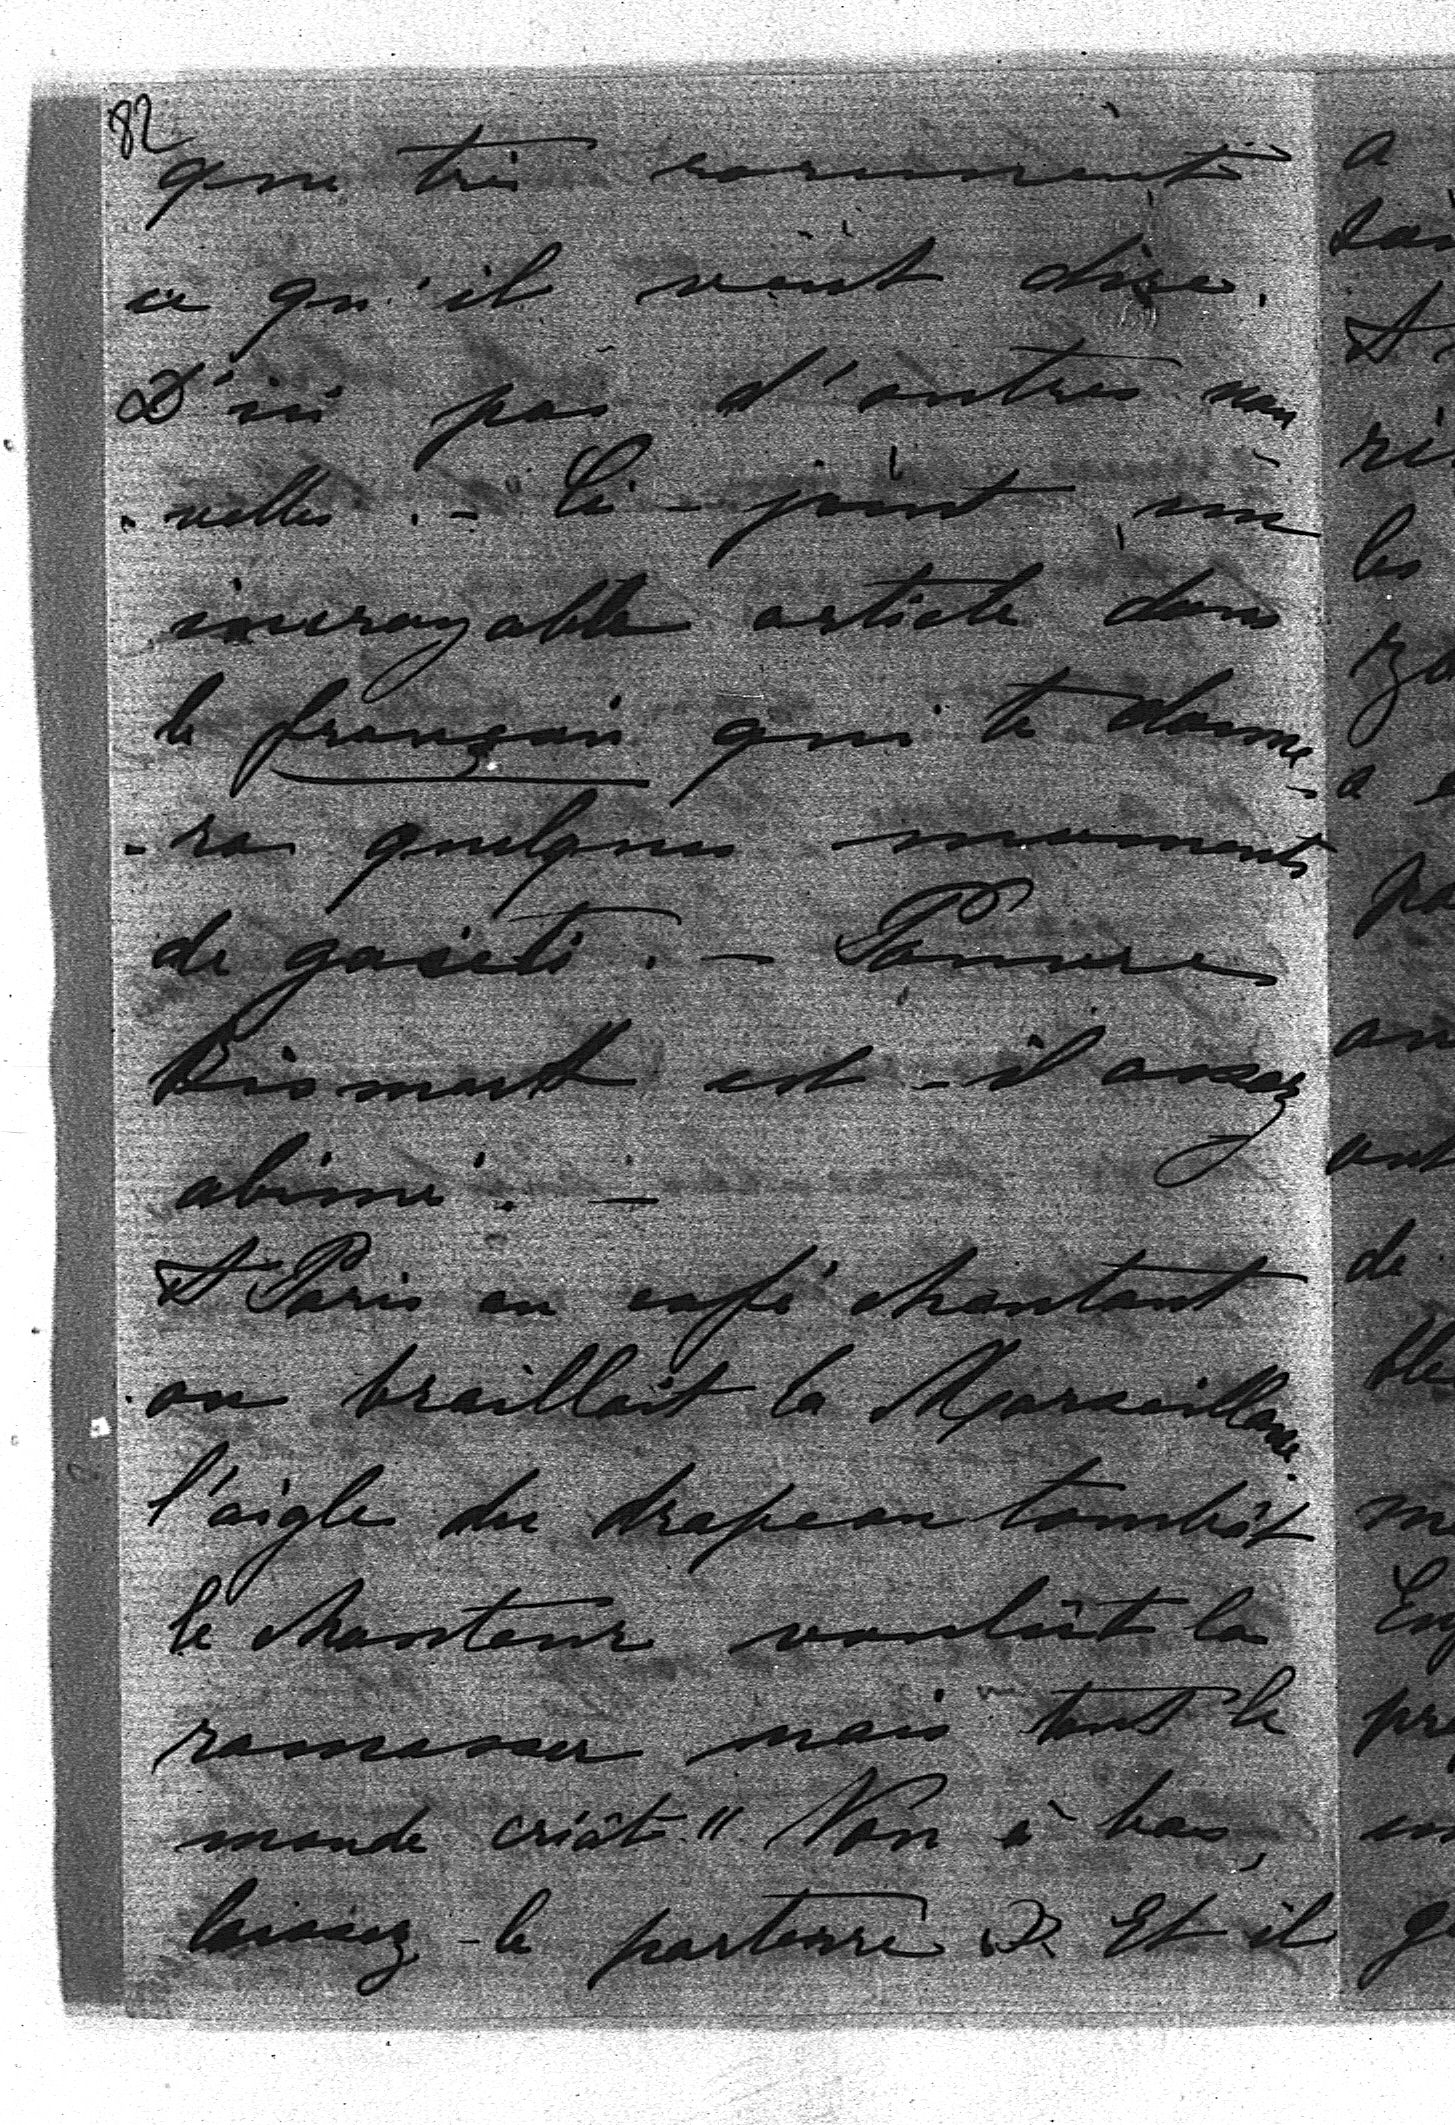 82
que très rarement
ce qu'il veut dire.
D'ici pas d'autres nou
-velles. - Ci-joint un
incroyable article dans
le français qui te donne-
-ra quelques moments
de gaieté. - Pauvre
Bismark est-il assez
abimé. -
A Paris au café chantant
on braillait la Marseillaise.
l'aigle du drapeau tombât
le chanteur voulût la
ramasser mais tout le
monde criât " Non à bas,
laissez-le parterre " Et il